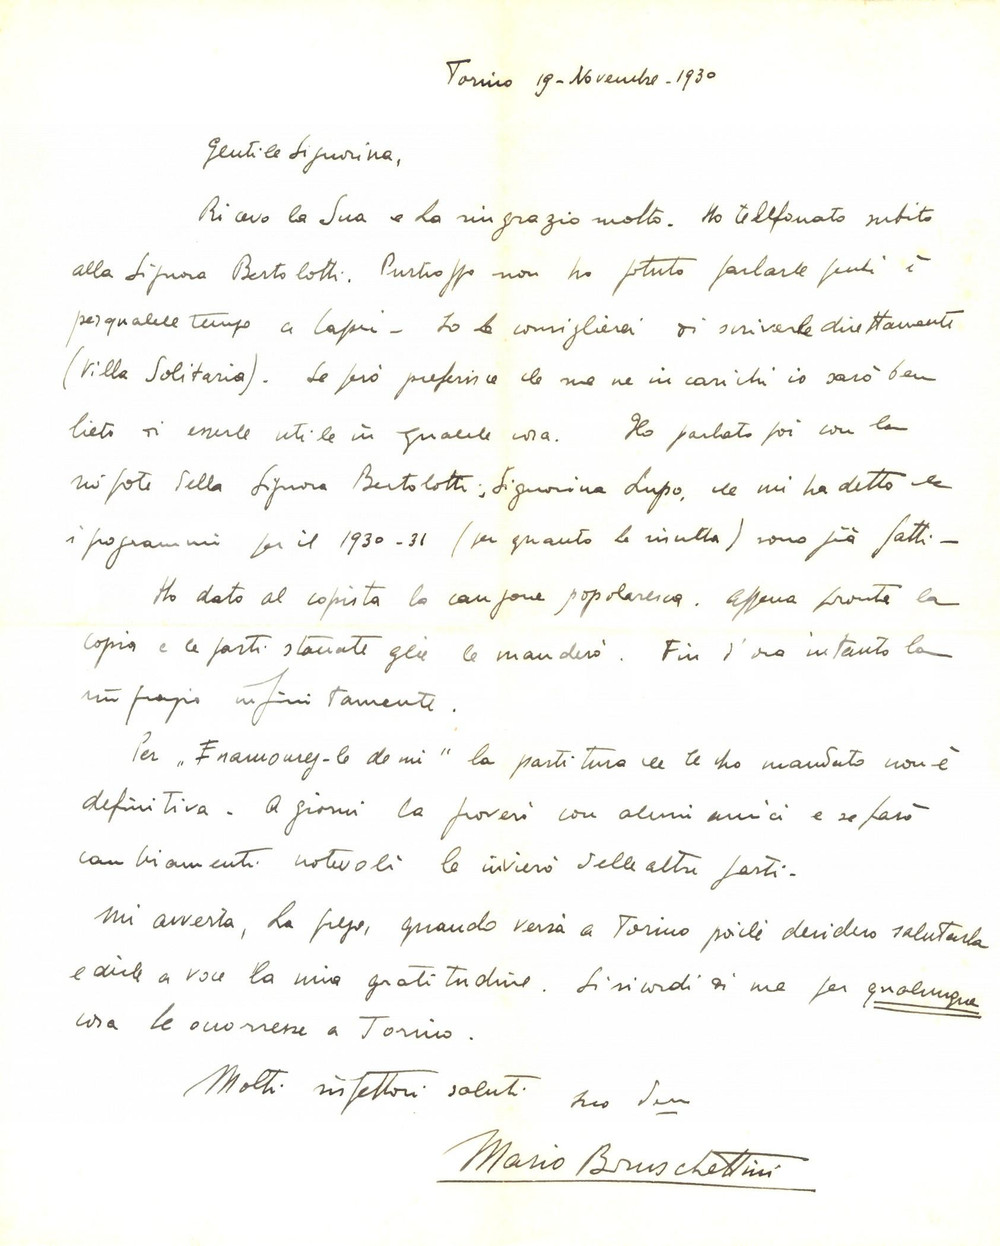 Torino 19-Novembre-1930
Gentile Signorina,
Ricevo la Sua e La ringrazio molto. Ho telefonato subito
alla Signora Bertolotti. Purtroppo non ho potuto parlarle perchè è
per qualche tempo a Capri - Io Le consiglierei di scriverle direttamente
(Villa Solitaria). Se però preferisce che me ne incarichi io sarò ben
lieto di esserle utile in qualche cosa. Ho parlato poi con la
nipote della Signora Bertolotti: Signorina Lupo, che mi ha detto che
i programmi per il 1930-31 (per quanto le risulta) sono già fatti -
Ho dato al copista la canzone popolaresca. Appena pronta la
copia e le parti staccate glie le manderò. Fin d'ora intanto la
ringrazio infinitamente.
Per "Enamourez-le de mi" la partitura che le ho mandato non è
definitiva. A giorni la proverò con alcuni amici e se farò
cambiamenti notevoli le invierò delle altre parti -
Mi avverta, La prego, quando verrà a Torino poichè desidero salutarla
e dirle a voce la mia gratitudine. Si ricordi di me per qualunque
cosa le occorresse a Torino.
Molti rispettosi saluti suo dev
Mario Bruschettini